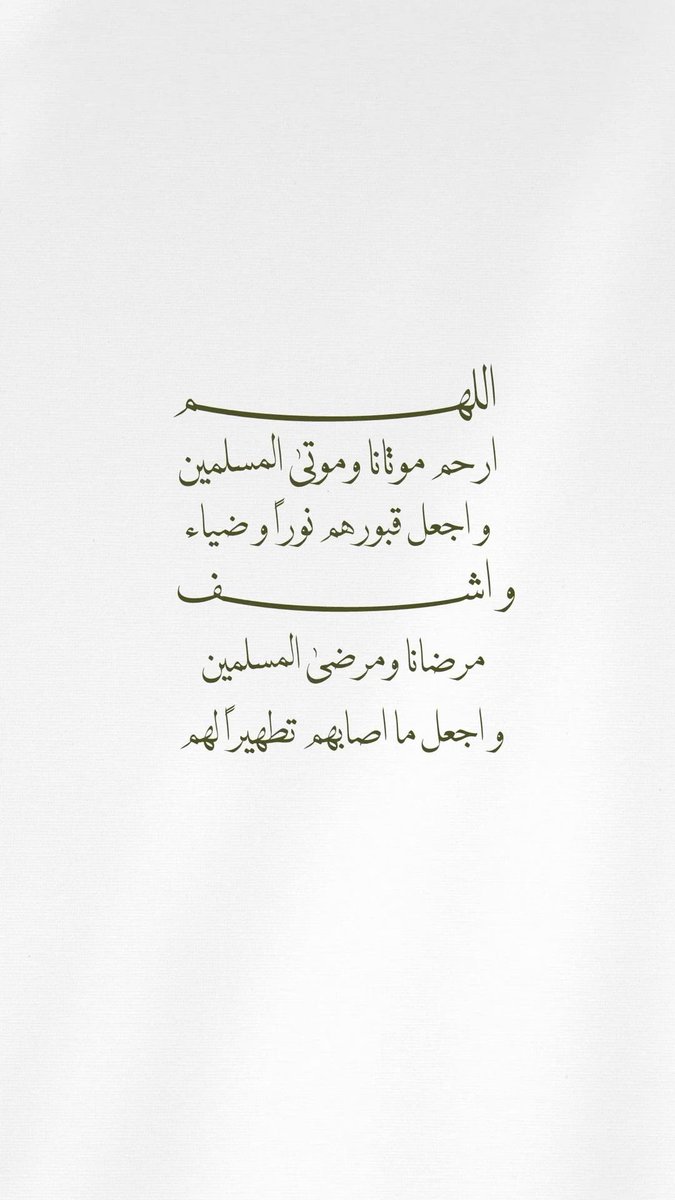 اللهم
ارحم موتانا وموتىٰ المسلمين
و اجعل قبورهم نوراً و ضياء
و اشف
مرضانا ومرضىٰ المسلمين
و اجعل ما اصابهم تطهيراً لهم